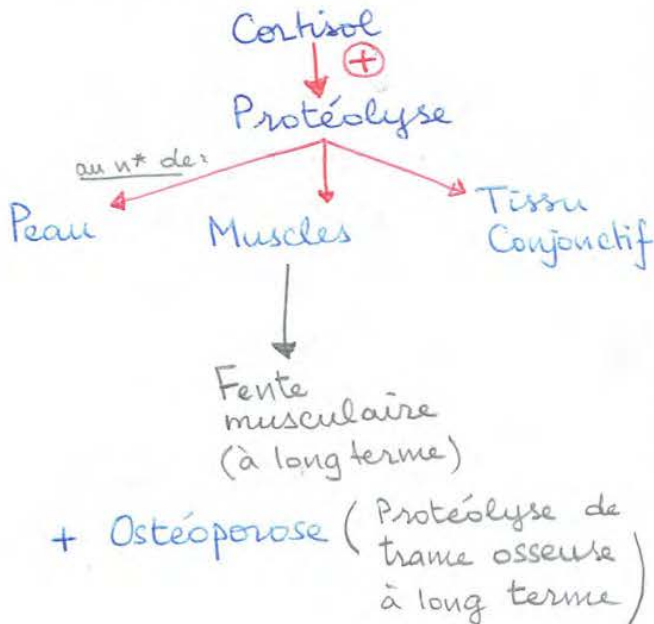 Cortisol
+
Protéolyse
au n* de:
Peau
Muscles
Tissu
Conjonctif
Fente
musculaire
(à long terme)
+ Ostéoporose (Protéolyse de
trame osseuse
à long terme)